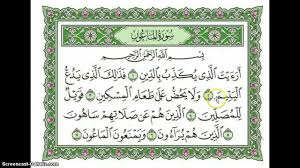 سُورَةُ المَاعُونِ
بِسْمِ اللَّهِ الرَّحْمَٰنِ الرَّحِيمِ
أَرَءَيْتَ الَّذِي يُكَذِّبُ بِالدِّينِ ۝١ فَذَٰلِكَ الَّذِي يَدُعُّ
الْيَتِيمَ ۝٢ وَلَا يَحُضُّ عَلَىٰ طَعَامِ الْمِسْكِينِ ۝٣ فَوَيْلٌ
لِّلْمُصَلِّينَ ۝٤ الَّذِينَ هُمْ عَن صَلَاتِهِمْ سَاهُونَ ۝٥
الَّذِينَ هُمْ يُرَاءُونَ ۝٦ وَيَمْنَعُونَ الْمَاعُونَ ۝٧
Screencast-O-Matic.com